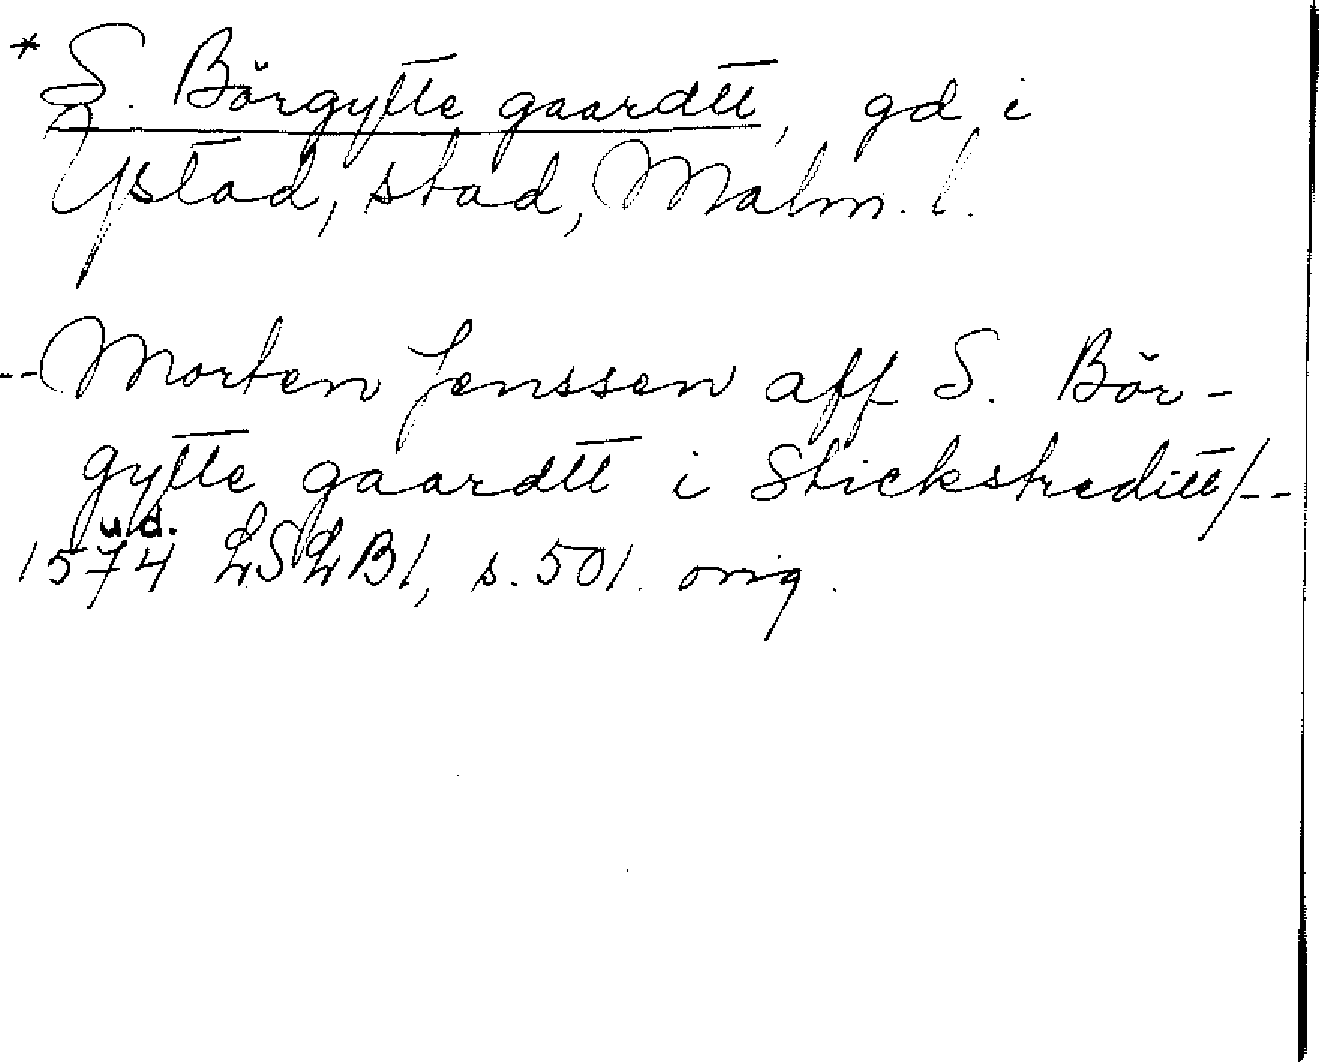 * S. Börgytte gaardtt, gd i
Ystad, stad, Malm. l.
--Morten Jenssen aff S. Bör-
gytte gaardtt i Stickstreditt/--
u.d.
1574 LSLB1, s. 501. orig.